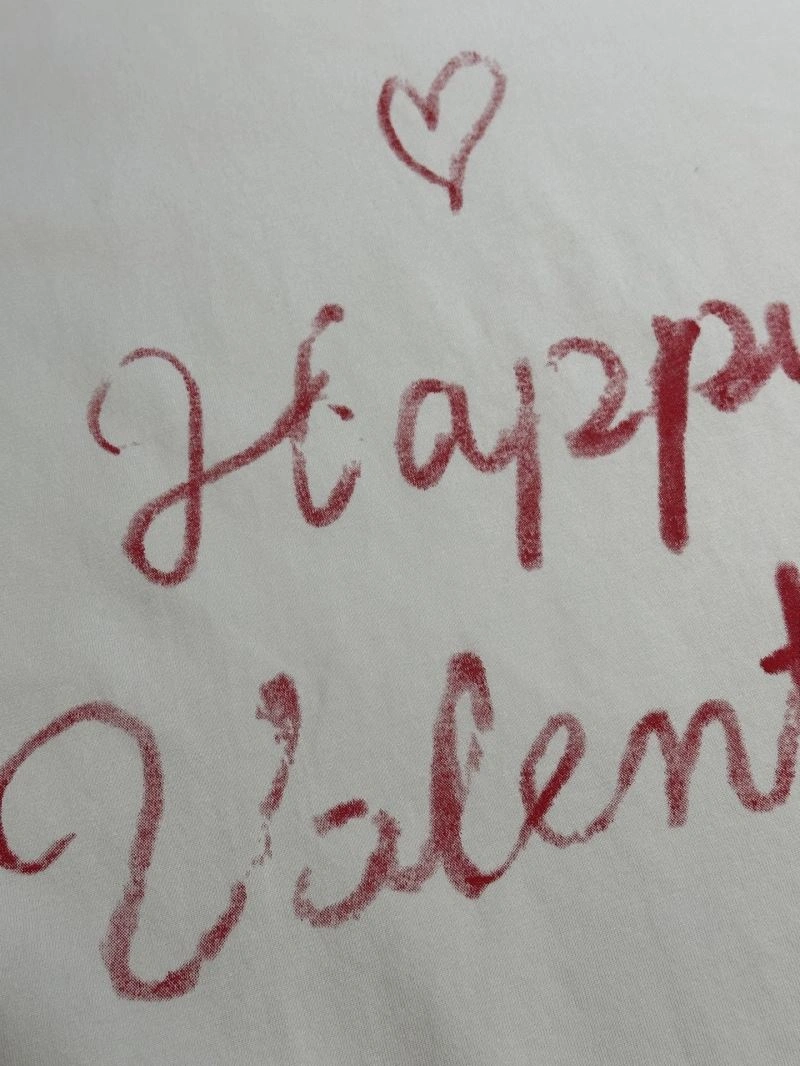 Happy
Valent